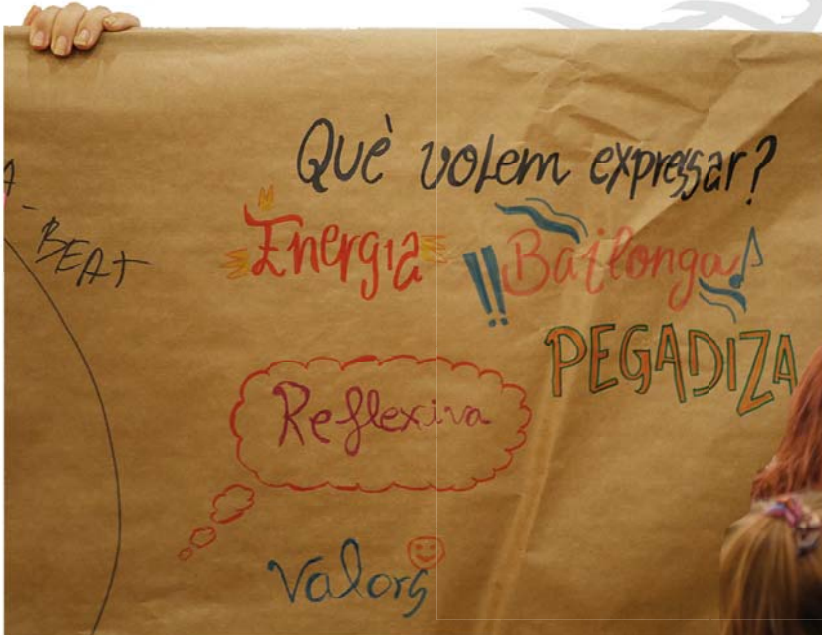 Què volem expressar?
BEAT
Energia
!! Bailonga
PEGADIZA
Reflexiva
Valors